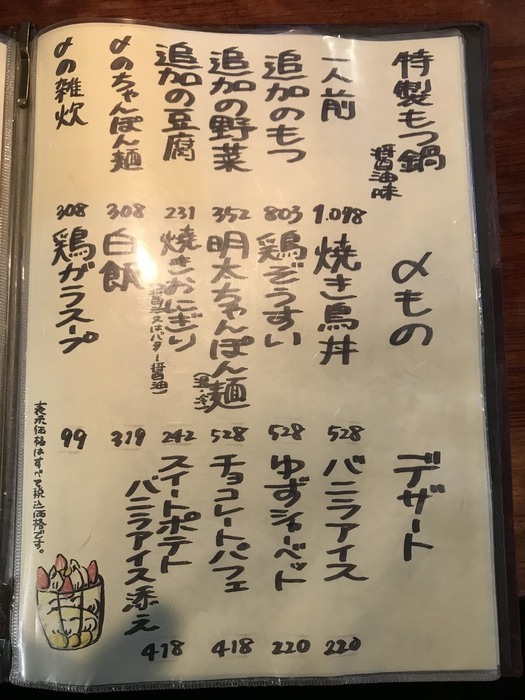 特製もつ鍋
醤油味
一人前
1.098
追加のもつ
803
追加の野菜
352
追加の豆腐
231
〆のちゃんぽん麺
308
〆の雑炊
308
〆もの
焼き鳥丼
528
鶏ぞうすい
528
明太ちゃんぽん麺
528
焼きおにぎり
(醤油又はバター醤油)
242
白飯
319
鶏ガラスープ
99
デザート
バニラアイス
220
ゆずシャーベット
220
チョコレートパフェ
418
スイートポテト
バニラアイス添え
418
表示価格はすべて税込価格です。